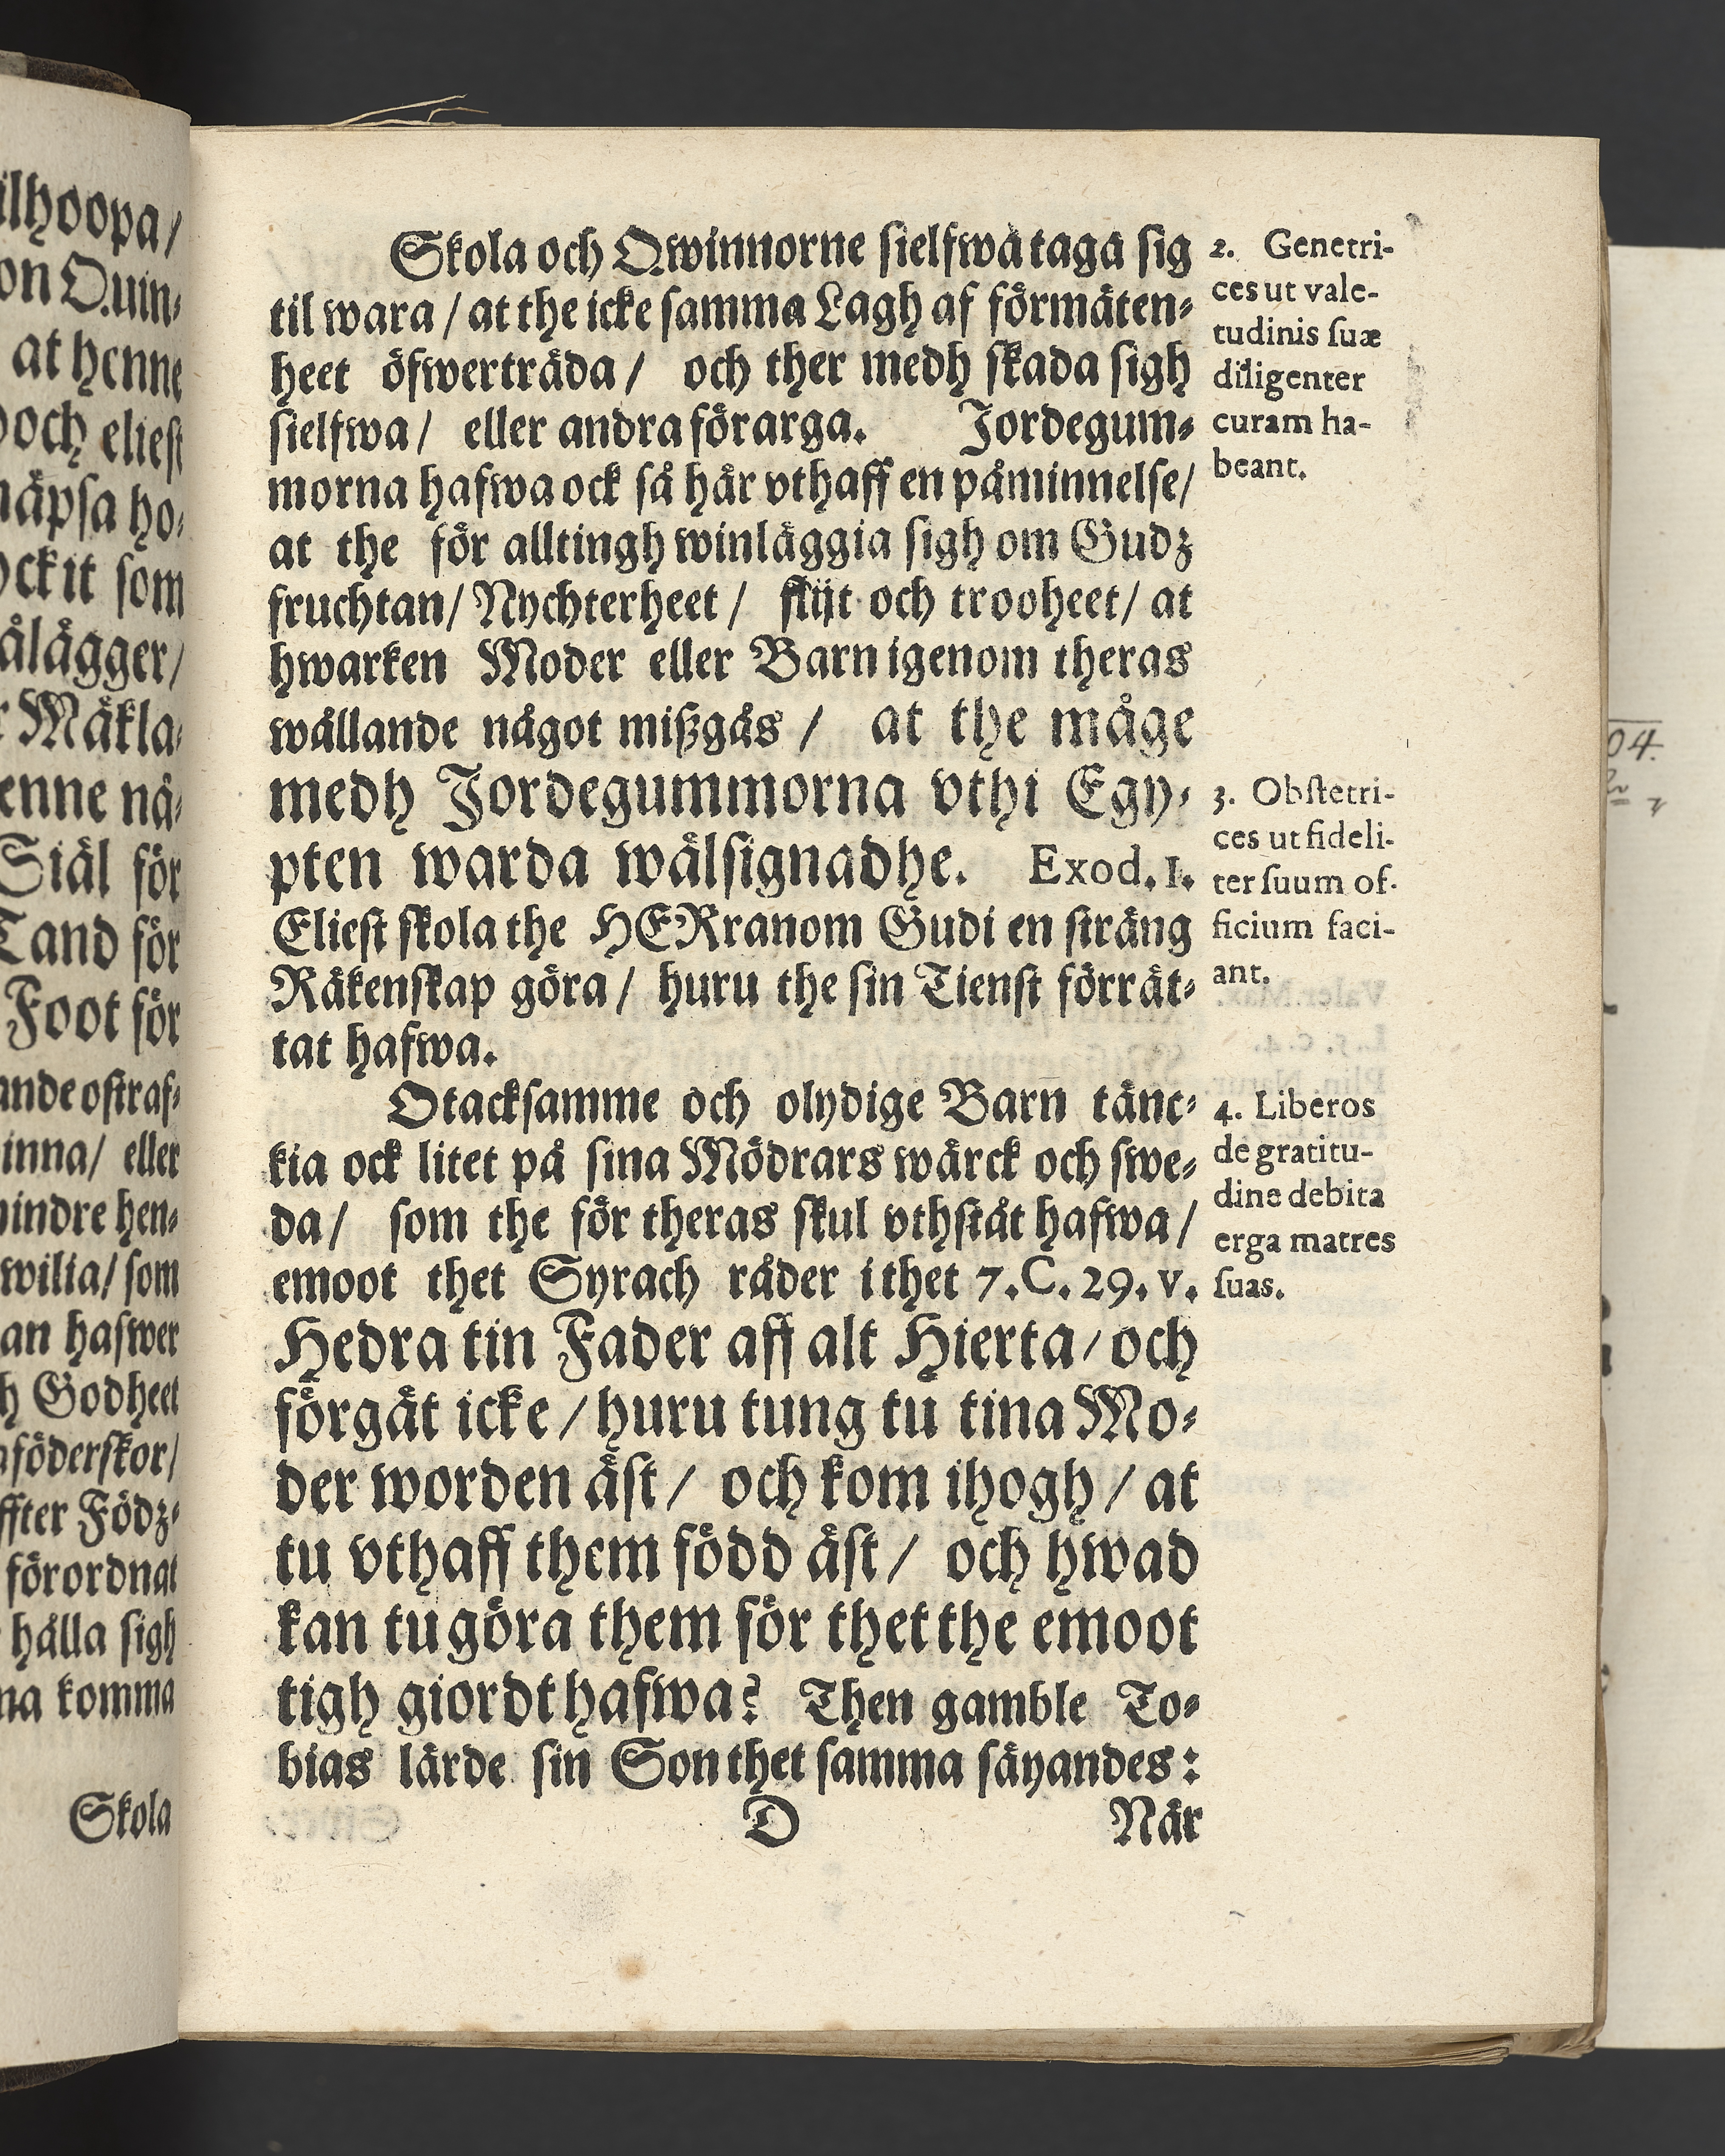 ilhoopa/
on Quin-
at henne
och eliest
näpsa ho-
ockit som
ålägger/
Mäkla-
enne nä-
Siäl för
Tand för
Foot för
ande ostraf-
inna/ eller
mindre hen-
wilia/ som
an hafwer
h Godheet
föderskor/
ffter Födz-
förordnat
hålla sigh
na komma
Skola
Skola och Qwinnorne sielfwa taga sig
til wara / at the icke samma Lagh af förmäten-
heet öfwerträda / och ther medh skada sigh
sielfwa / eller andra förarga. Jordegum-
morna hafwa ock så här vthaff en påminnelse /
at the för alltingh winläggia sigh om Gudz
fruchtan / Nychterheet / flijt och trooheet / at
hwarken Moder eller Barn igenom theras
wållande något mißgås / at the måge
medh Jordegummorna vthi Egy-
pten warda wälsignadhe. Exod. 1.
Eliest skola the HERranom Gudi en sträng
Räkenskap göra / huru the sin Tienst förrät-
tat hafwa.
Otacksamme och olydige Barn tänc-
kia ock litet på sina Mödrars wärck och swe-
da / som the för theras skul vthståt hafwa /
emoot thet Syrach råder i thet 7. C. 29. v.
Hedra tin Fader aff alt Hierta / och
förgät icke / huru tung tu tina Mo-
der worden äst / och kom ihogh / at
tu vthaff them född äst / och hwad
kan tu göra them för thet the emoot
tigh giordt hafwa? Then gamble To-
bias lärde sin Son thet samma säyandes:
D När
2. Genetri-
ces ut vale-
tudinis suæ
diligenter
curam ha-
beant.
3. Obstetri-
ces ut fideli-
ter suum of-
ficium faci-
ant.
4. Liberos
de gratitu-
dine debita
erga matres
suas.
04.